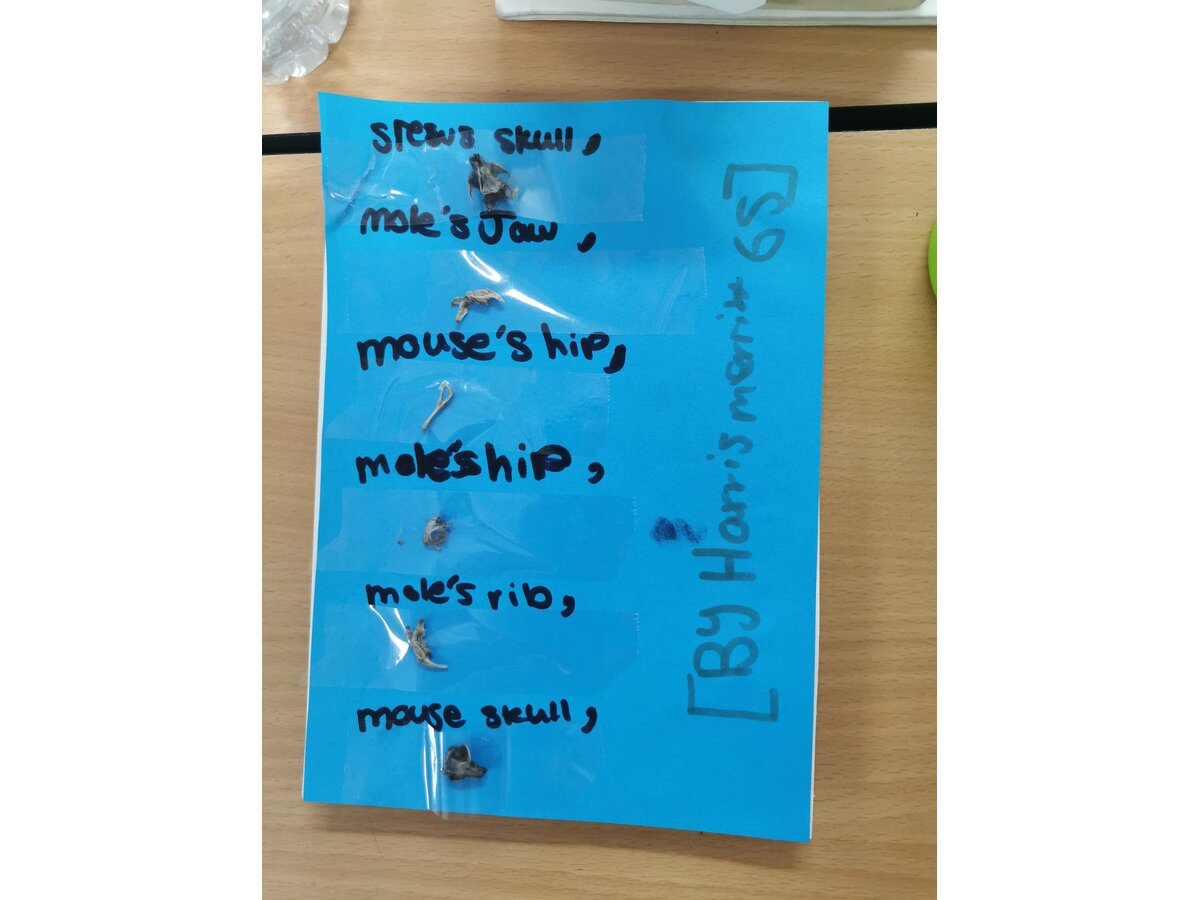 srews skull,
mole's Jaw,
mouse's hip,
mole's hip,
mole's rib,
mouse skull,
[By Harris merritt 6S]